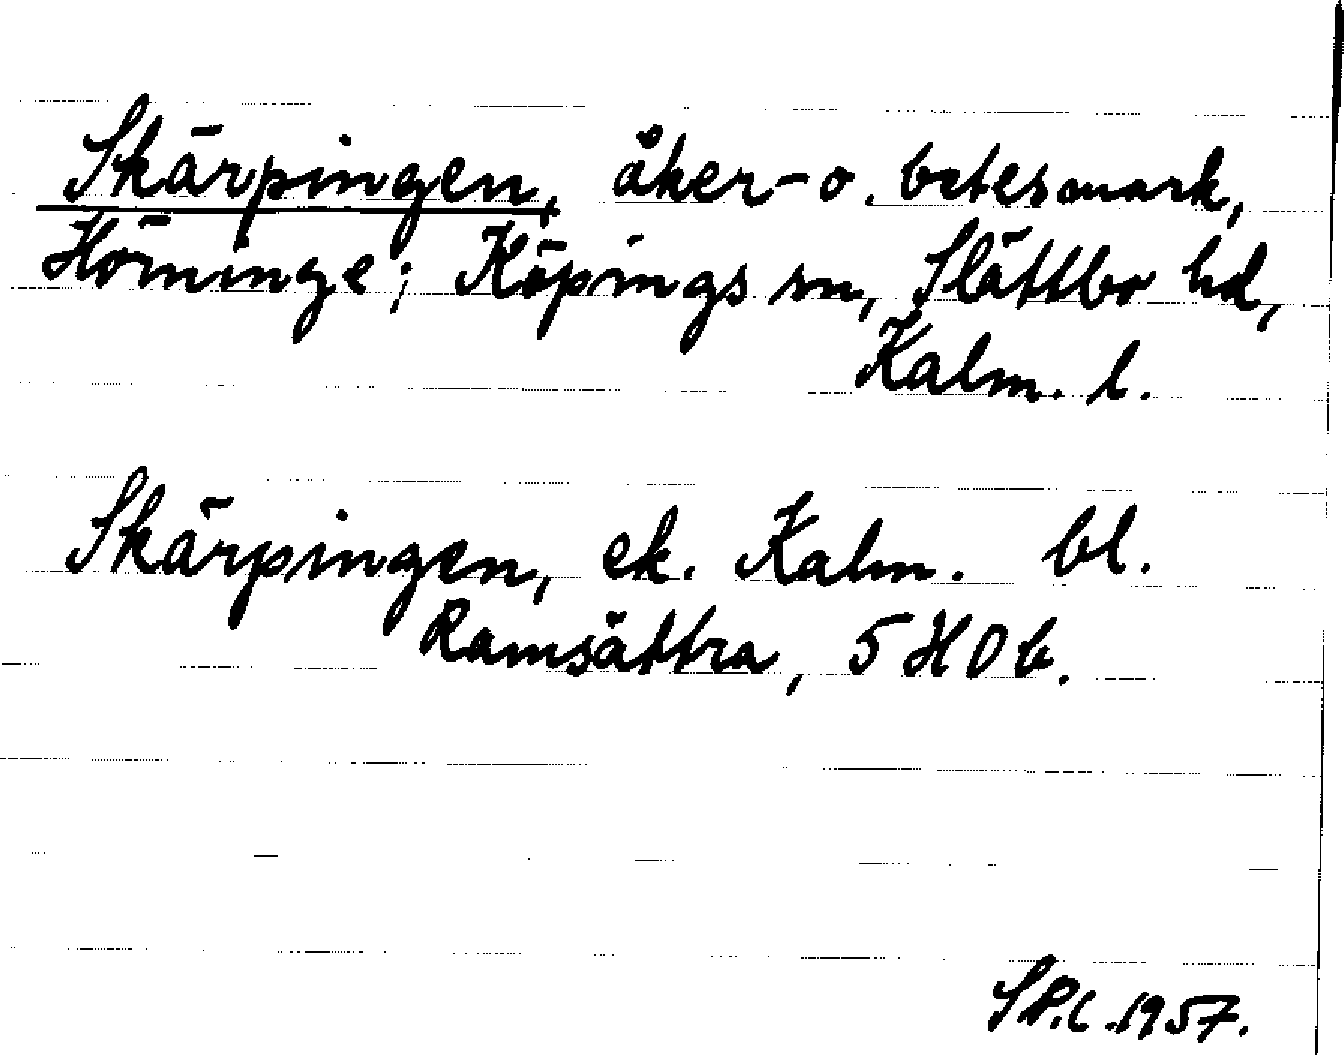 Skärpingen, åker- o. betesmark,
Hörninge; Köpings sn, Slättbo hd,
Kalm. l.
Skärpingen, ek. Kalm. bl.
Ramsättra, 5 H 0 b.
1957.